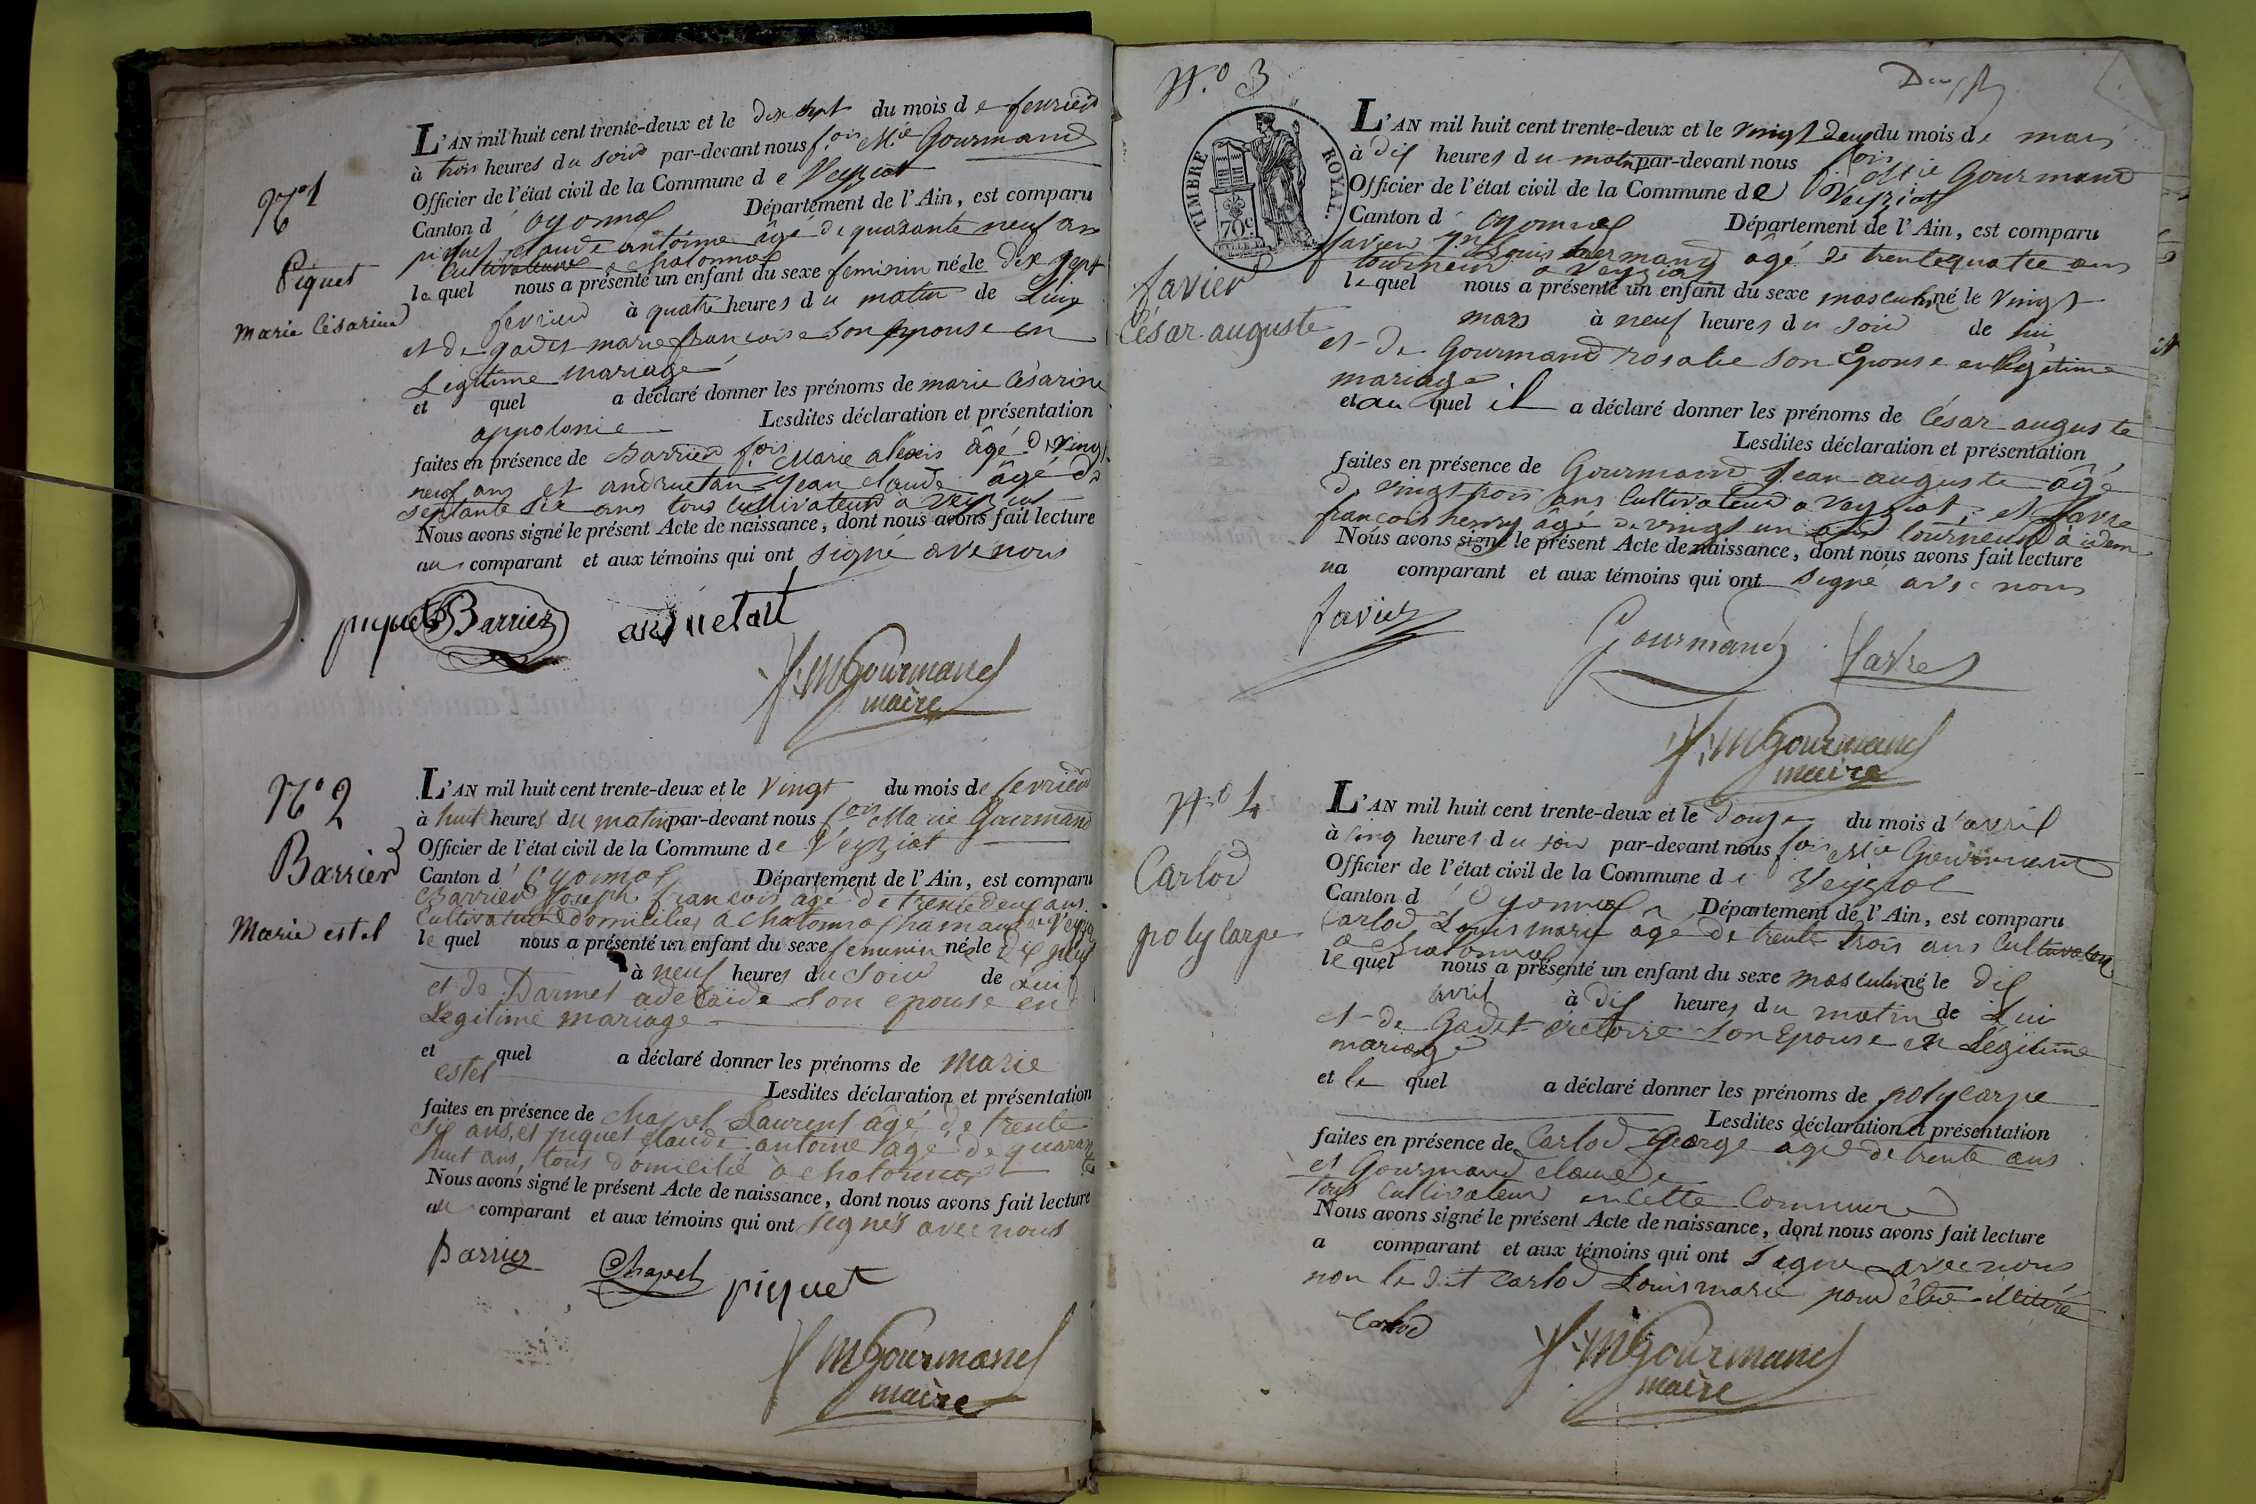 N° 1
Piquet
Marie Césarine
L'AN mil huit cent trente-deux et le dix sept du mois de fevrier
à trois heures du soir par-devant nous fois Mie Gourmand
Officier de l'état civil de la Commune de Veyziat
Canton d'oyonnax Département de l'Ain, est comparu
piquet claude antoine âge de quarante neuf ans
cultivateur a chatonnax
le quel nous a présenté un enfant du sexe feminin né le dix sept
fevrier à quatre heures du matin de Lui
et de gadet marie francoise son epouse en
Legitime mariage
et quel a déclaré donner les prénoms de marie Césarine
appolonie Lesdites déclaration et présentation
faites en présence de Barrier fois Marie alexis âgé de vingt
neuf ans et andruetan jean claude âgé de
septante six ans tous cultivateurs a veyziat
Nous avons signé le présent Acte de naissance, dont nous avons fait lecture
au comparant et aux témoins qui ont signé avec nous
piquet Barrier
f. m Gourmand
maire
N° 2
Barrier
Marie estel
L'AN mil huit cent trente-deux et le vingt du mois de fevrier
à huit heures du matin par-devant nous fois Marie Gourmand
Officier de l'état civil de la Commune de Veyziat
Canton d'oyonnax Département de l'Ain, est comparu
Barrier Joseph francois age de trente deux ans
cultivateur domicilié a chatonnax hamaux de Veyziat
le quel nous a présenté un enfant du sexe feminin né le dix neuf
à neuf heures du soir de Lui
et de Darmet adelaïde son epouse en
Legitime mariage
et quel a déclaré donner les prénoms de Marie
estel Lesdites déclaration et présentation
faites en présence de Chapel Laurent âgé de trente
six ans, et piquet claude antoine age de quarante
huit ans, tous domicilié à chatonnax
Nous avons signé le présent Acte de naissance, dont nous avons fait lecture
au comparant et aux témoins qui ont signés avec nous
Barrier Chapel piquet
f. m Gourmand
maire
N° 3
TIMBRE ROYAL.
70c.
favier
César auguste
L'AN mil huit cent trente-deux et le vingt deux du mois de mars
à dix heures du matin par-devant nous fois Mie Gourmand
Officier de l'état civil de la Commune de Veyziat
Canton d'oyonnax Département de l'Ain, est comparu
favier Louis armand âgé de trente quatre ans
tourneur a Veyziat
le quel nous a présenté un enfant du sexe masculin né le vingt
mars à neuf heures du soir de lui
et de Gourmand rosalie son Epouse en legitime
mariage
et au quel il a déclaré donner les prénoms de César auguste
Lesdites déclaration et présentation
faites en présence de Gourmand Jean auguste âgé
de vingt trois ans cultivateur a veyziat; et favre
francois henry âgé de vingt un ans tourneur à idem
Nous avons signé le présent Acte de naissance, dont nous avons fait lecture
comparant et aux témoins qui ont signé avec nous
favier Gourmand favre
f. m Gourmand
maire
N° 4
Carlod
polycarpe
L'AN mil huit cent trente-deux et le douze du mois d'avril
à cinq heures du soir par-devant nous fois Mie Gourmand
Officier de l'état civil de la Commune de Veyziat
Canton d'oyonnax Département de l'Ain, est comparu
Carlod Louis marie age de trente trois ans cultivateur
a chatonnax
le quel nous a présenté un enfant du sexe masculin né le dix
avril à dix heures du matin de Lui
et de Gadet victoire son Epouse en Légitime
mariage
et le quel a déclaré donner les prénoms de polycarpe
Lesdites déclaration et présentation
faites en présence de Carlod George âgé de trente ans
et Gourmand claude
tous cultivateur en cette Commune
Nous avons signé le présent Acte de naissance, dont nous avons fait lecture
a comparant et aux témoins qui ont signe avec nous
non le dit Carlod Louis marie pour être illitiré
Carlod
f. m Gourmand
maire